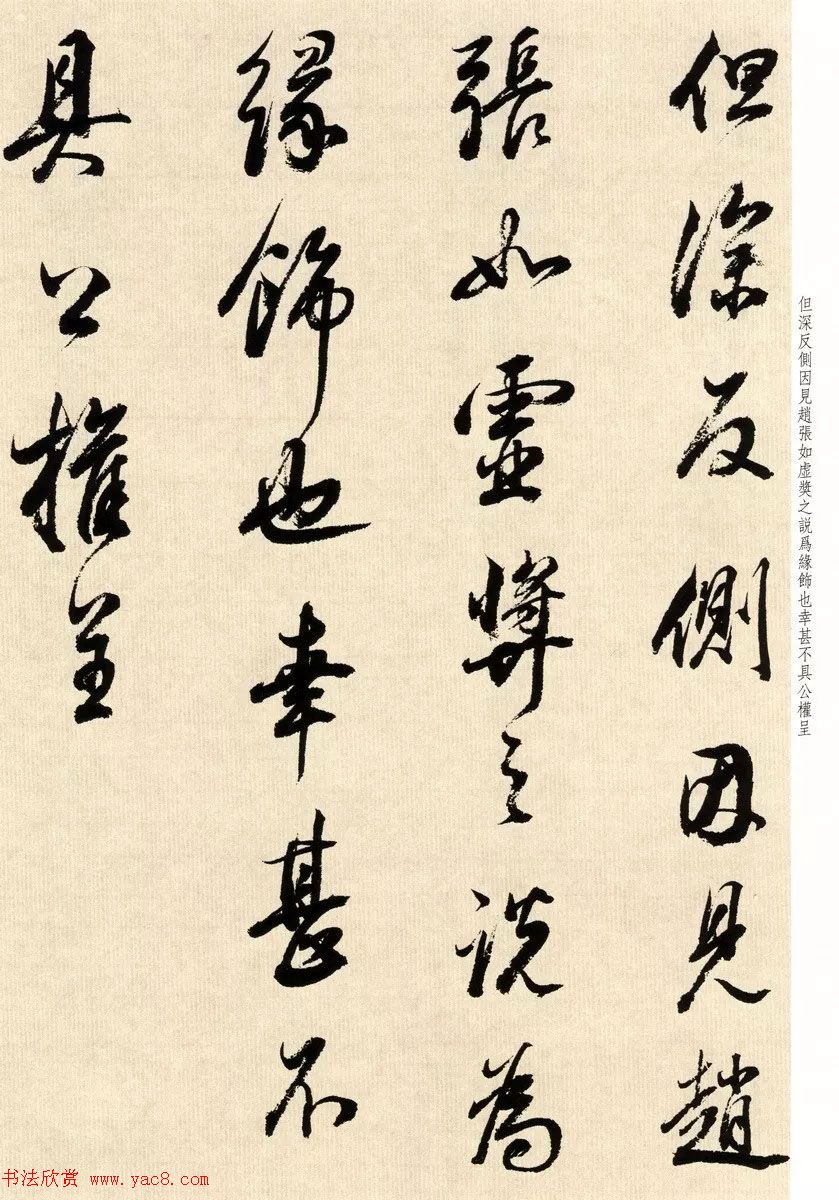 但深反側因見趙
張如虛奬之説爲
緣飾也幸甚不
具公權呈
但深反側因見趙張如虛奬之説爲緣飾也幸甚不具公權呈
书法欣赏 www.yac8.com